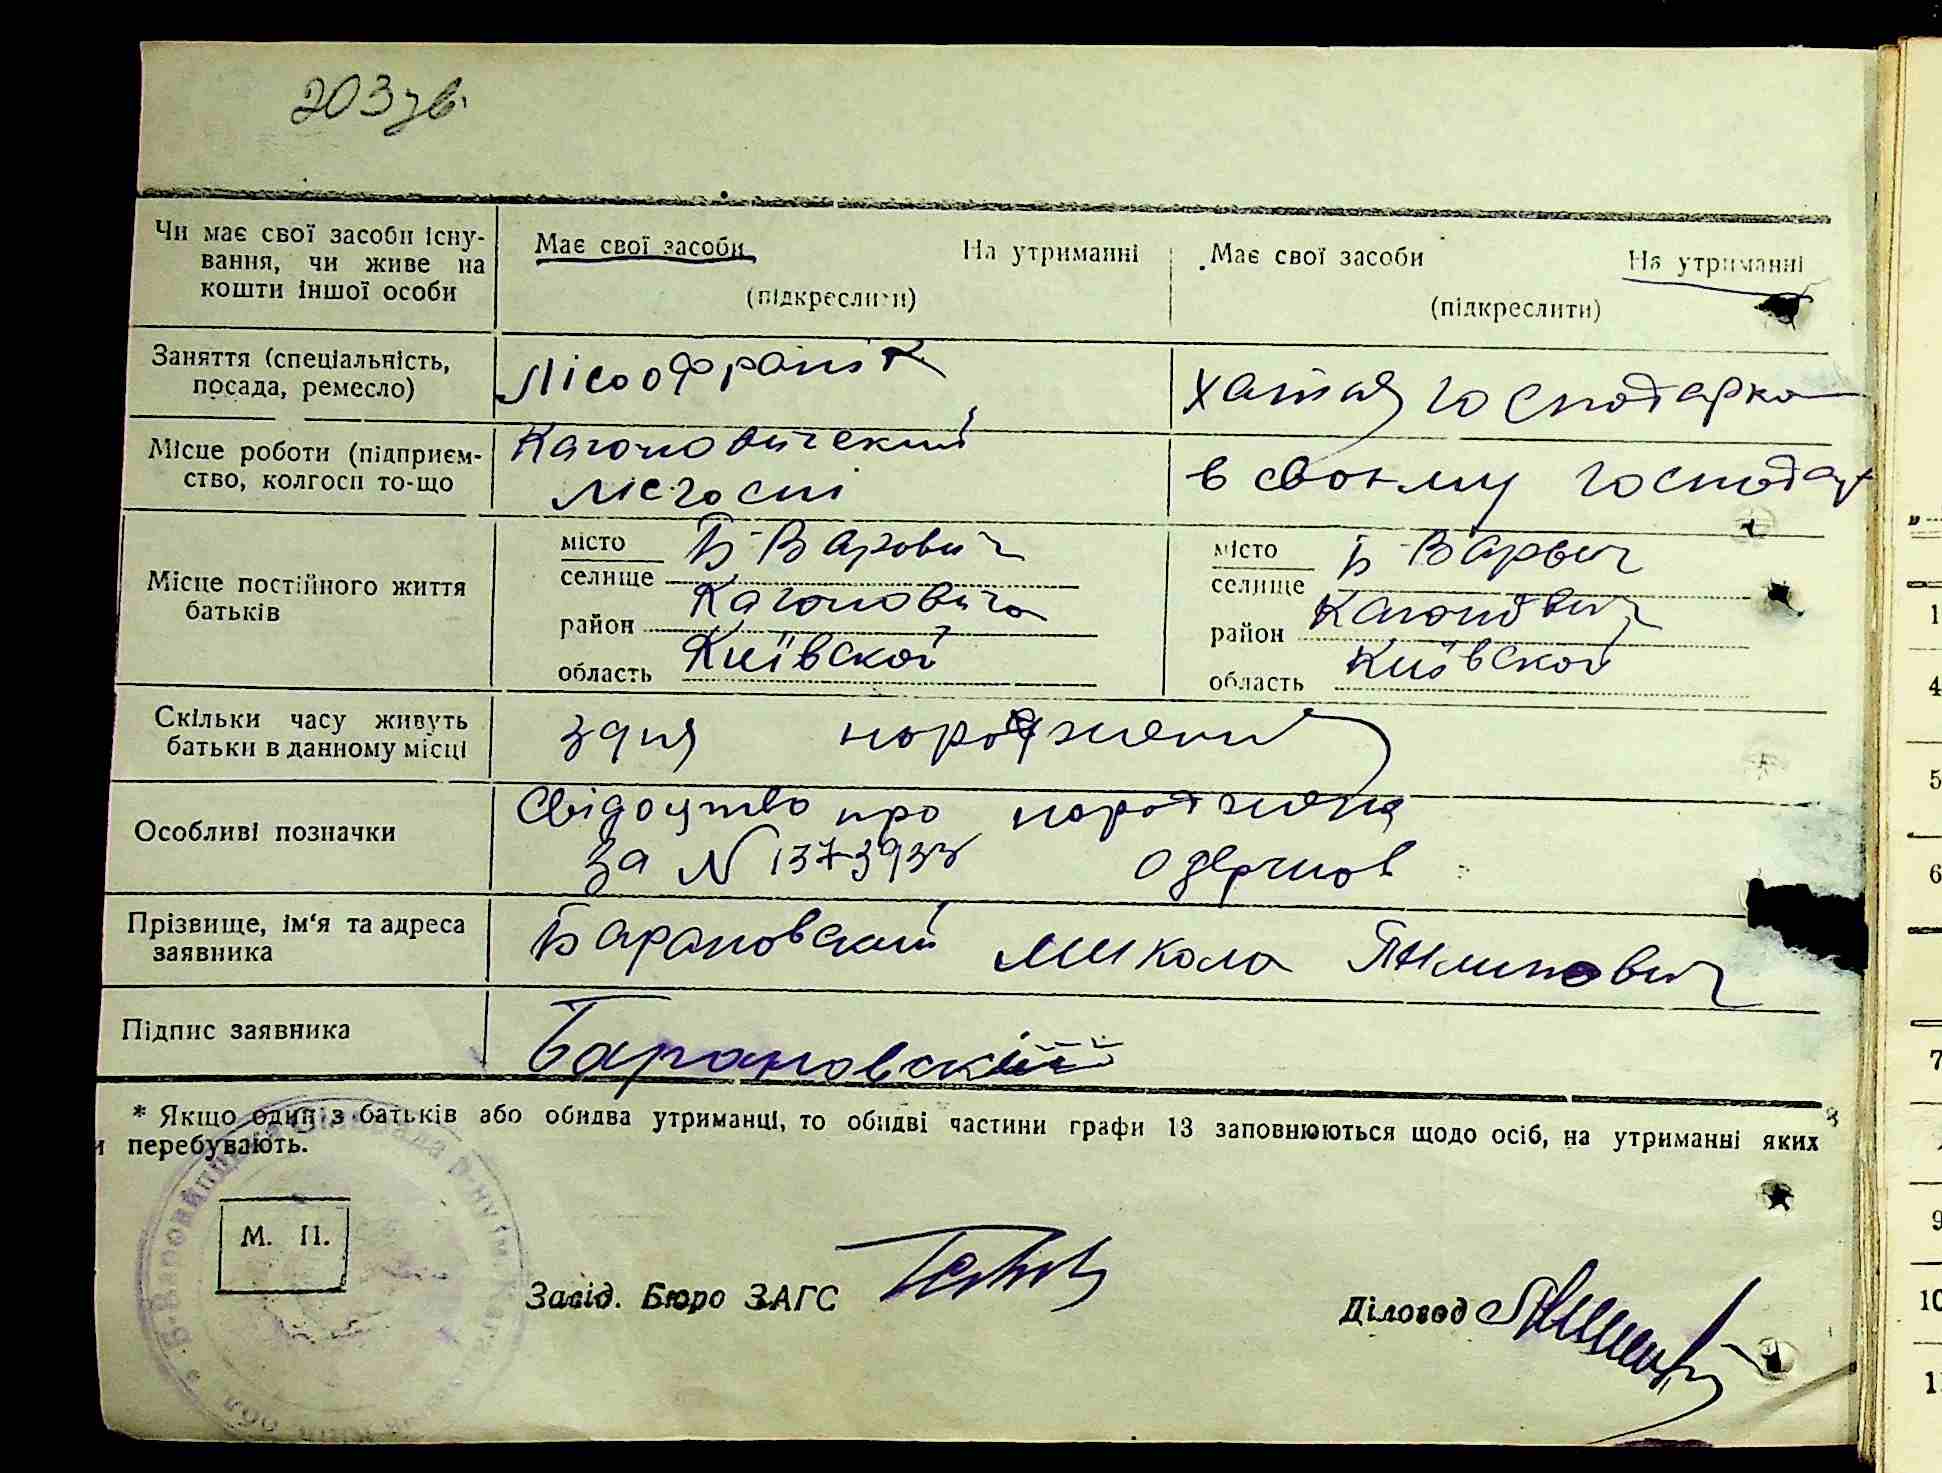 203 зв.
Чи має свої засоби існу-
вання, чи живе на
кошти іншої особи
Має свої засоби
На утриманні
(підкреслити)
Має свої засоби
На утриманні
(підкреслити)
Заняття (спеціальність,
посада, ремесло)
хатня господарка
Місце роботи (підприєм-
ство, колгосп то-що
Кагоновичский
лісгосп
в своєму господар
Місце постійного життя
батьків
місто
селище
Б-Варович
район
Кагоновича
область
Київской
місто
селище
Б-Варович
район
Каганович
область
Київской
Скільки часу живуть
батьки в данному місці
з дня
Особливі позначки
Свідоцтво про
за N
одержов
Прізвище, ім'я та адреса
заявника
Барановский Микола Пилипович
Підпис заявника
Барановский
* Якщо один з батьків або обидва утриманці, то обидві частини графи 13 заповнюються щодо осіб, на утриманні яких
и перебувають.
М. П.
Завід. Бюро ЗАГС
Діловод
1
4
5
6
7
9
10